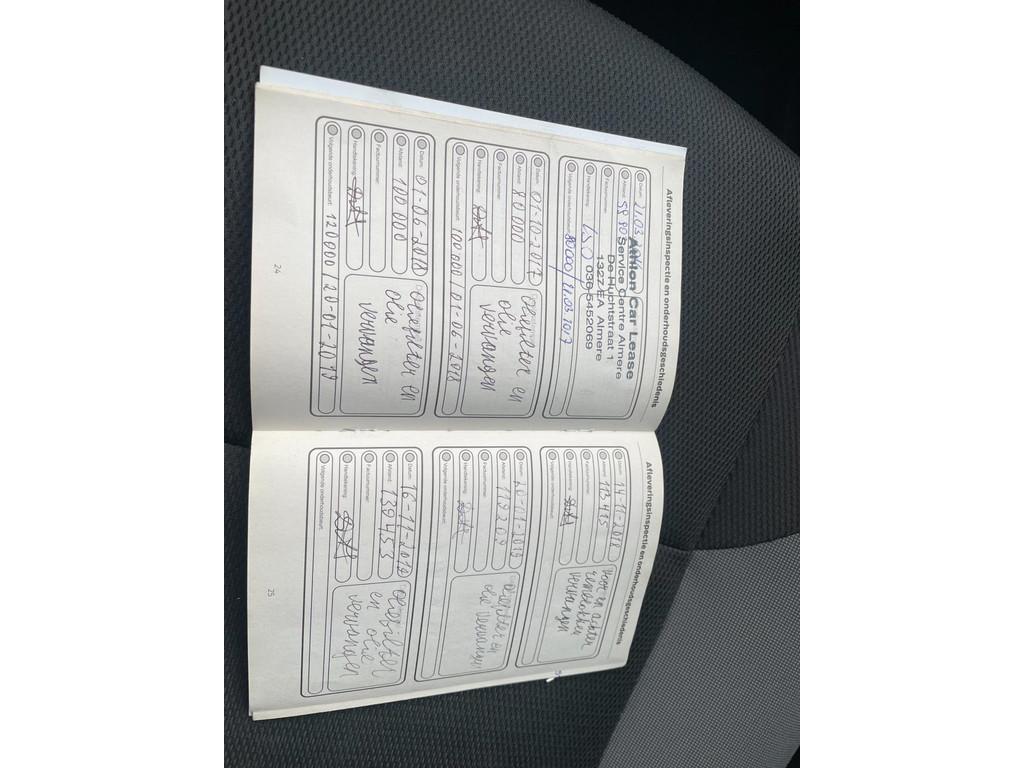 Afleveringsinspectie en onderhoudsgeschiedenis
Datum: 21.03
Afstand:
Factuurnummer:
Handtekening:
Volgende onderhoudsbeurt: 80 000 / 21.03 2017
Athlon Car Lease
Service Centre Almere
De Huchtstraat 1
1327 EA Almere
036-5452069
Datum: 01-10-2017
Afstand: 80 000
Factuurnummer:
Handtekening:
Volgende onderhoudsbeurt: 100 000 / 01-06-2018
Oliefilter en
olie
vervangen
Datum: 01-06-2018
Afstand: 100 000
Factuurnummer:
Handtekening:
Volgende onderhoudsbeurt: 120 000 / 20-01-2019
Oliefilter en
olie
vervangen
24
Afleveringsinspectie en onderhoudsgeschiedenis
Datum: 14-11-2018
Afstand: 113 415
Factuurnummer:
Handtekening:
Volgende onderhoudsbeurt:
Voor en achter
remblokken
vervangen
Datum: 20-01-2019
Afstand: 119 209
Factuurnummer:
Handtekening:
Volgende onderhoudsbeurt:
Oliefilter en
olie vervangen
Datum: 16-11-2019
Afstand: 139 453
Factuurnummer:
Handtekening:
Volgende onderhoudsbeurt:
Oliefilter
en olie
vervangen
25